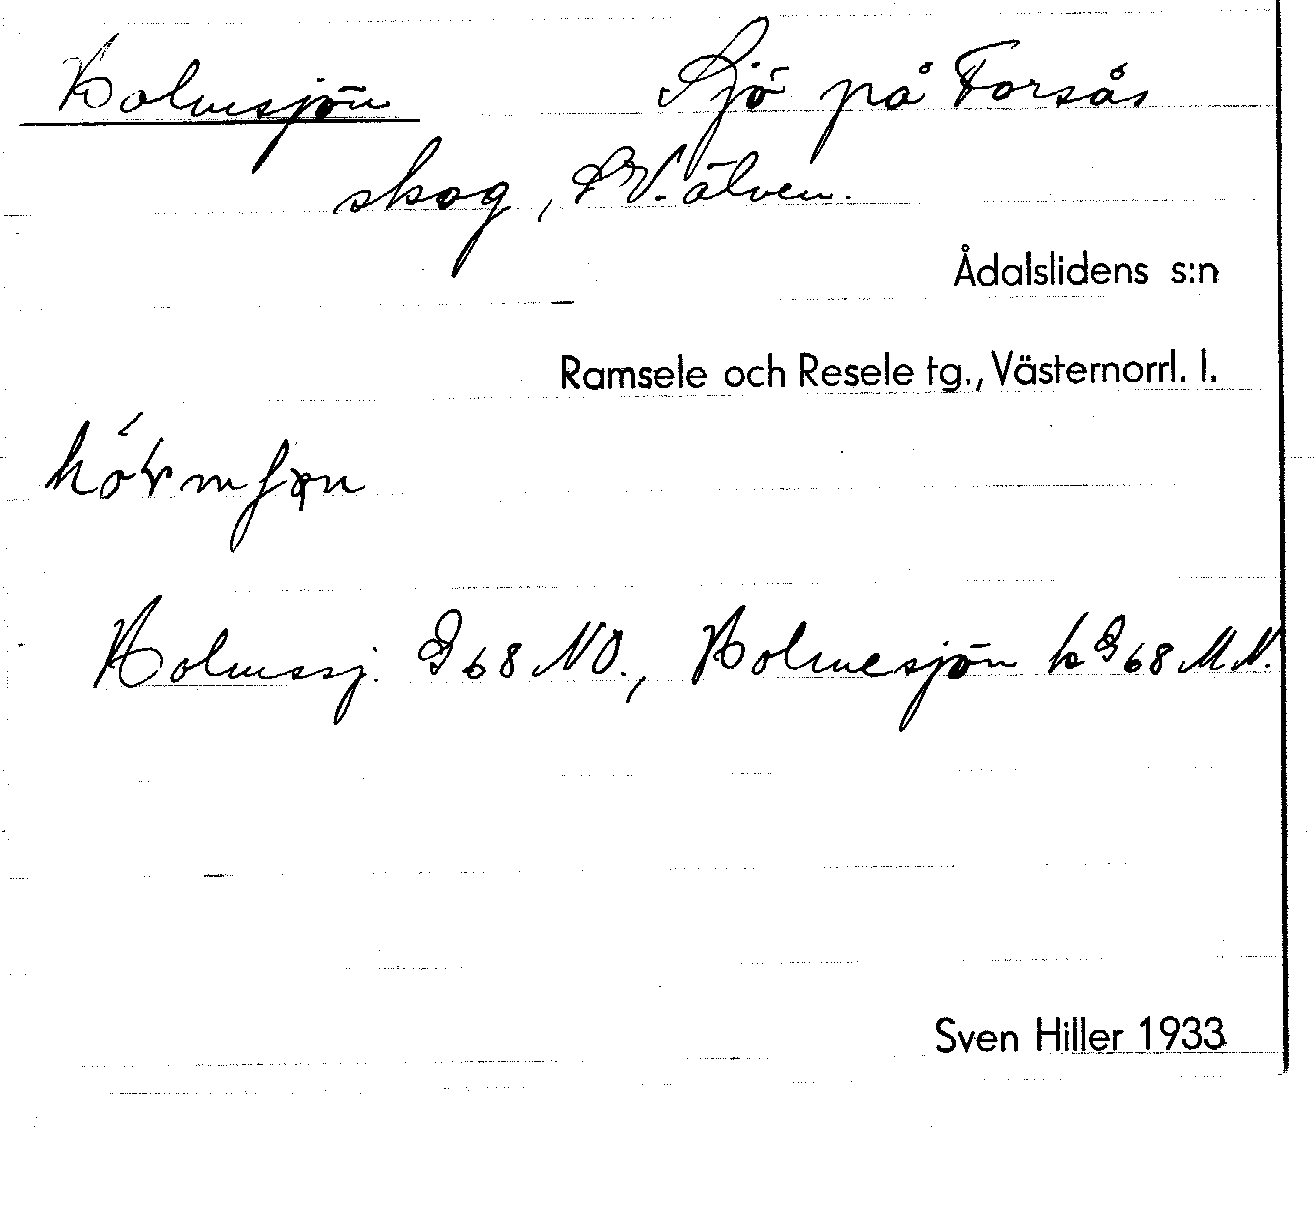 Holmsjön Sjö på Forsås
skog, SV. älven.
Ådalslidens s:n
Ramsele och Resele tg., Västernorrl. l.
Holmssj. G 68 NO., Holmesjön k G 68 
Sven Hiller 1933